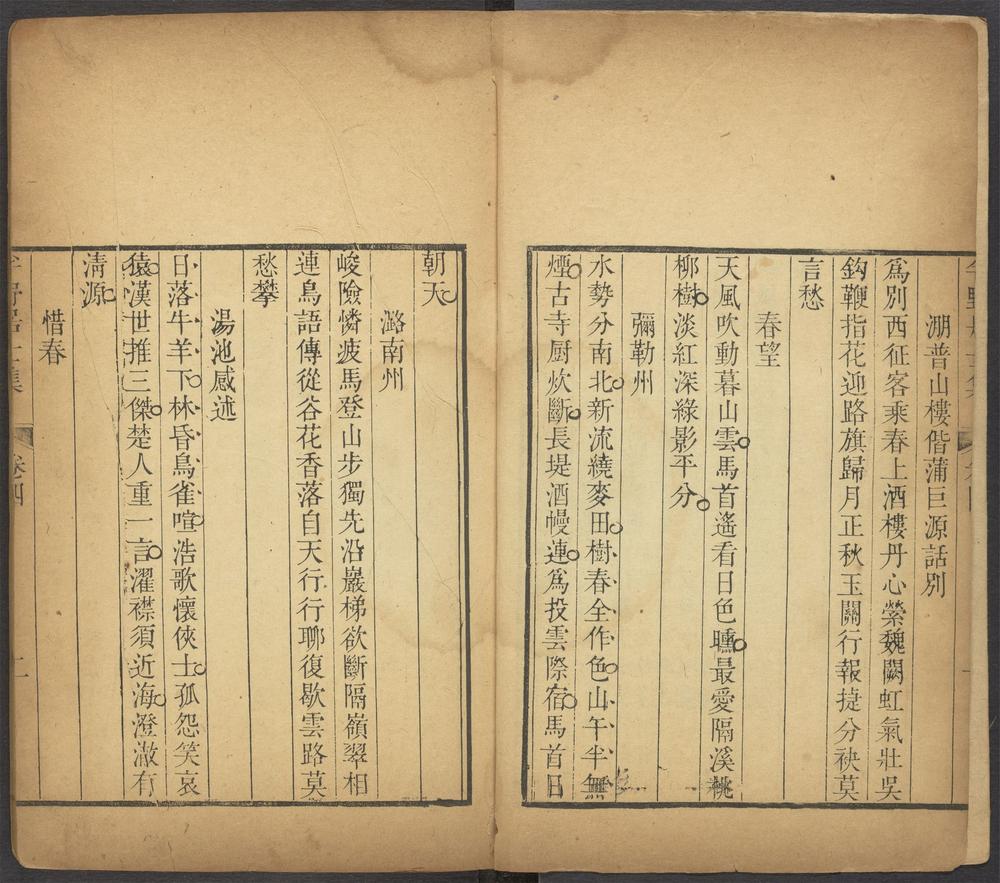 淜普山樓偕蒲巨源話別
爲別西征客乘春上酒樓丹心縈魏闕虹氣壯吳
鈎鞭指花迎路旗歸月正秋玉關行報捷分袂莫
言愁
春望
天風吹動暮山雲馬首遙看日色曛最愛隔溪桃
柳樹淡紅深綠影平分
彌勒州
水勢分南北新流繞麥田樹春全作色山午半無
煙古寺厨炊斷長堤酒幔連爲投雲際宿馬首日
朝天
潞南州
峻險憐疲馬登山步獨先沿巖梯欲斷隔嶺翠相
連鳥語傳從谷花香落自天行行聊復歇雲路莫
愁攀
湯池感述
日落牛羊下林昏鳥雀喧浩歌懷俠士孤怨笑哀
猿漢世推三傑楚人重一言濯襟須近海澄澈有
淸源
惜春
卷四
二